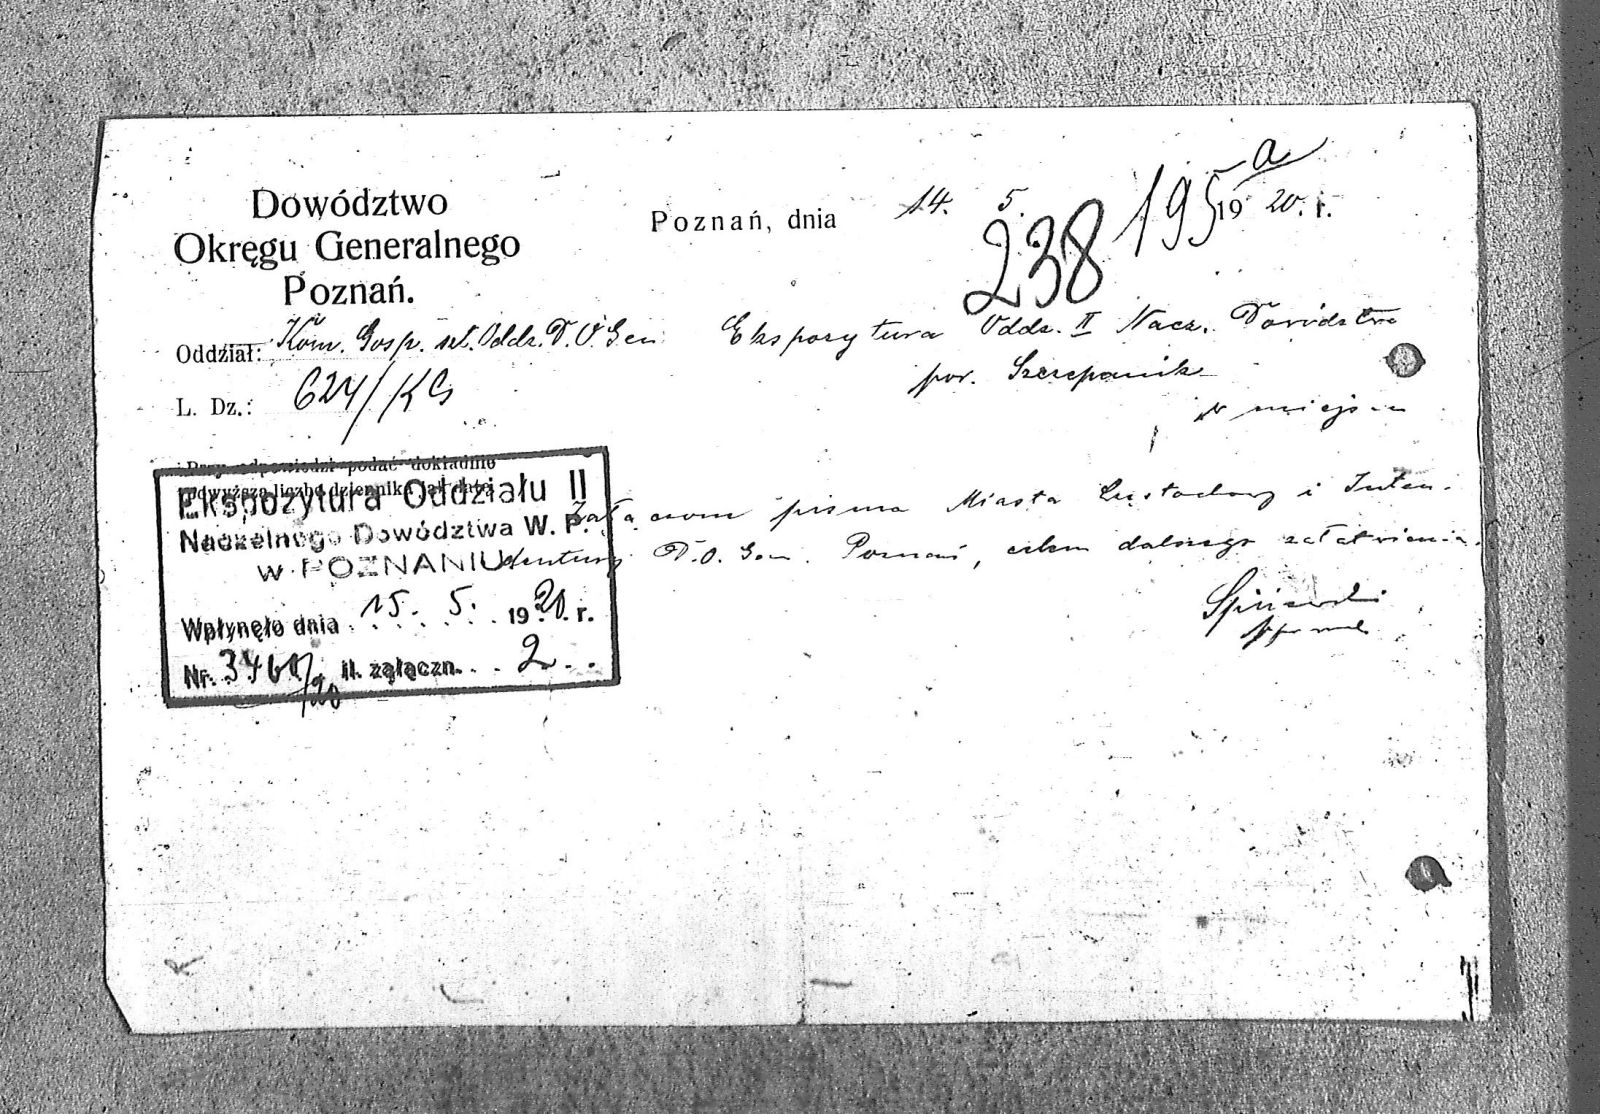 195 a
238
Dowództwo
Okręgu Generalnego
Poznań.
Poznań, dnia 14. 5. 1920. r.
Oddział: Kom. Gosp. szt. Oddz. D.O.Gen
L. Dz.: 624/KG
Ekspozytura Oddz. II Nacz. Dowództwa
por. Szczepanik
w miejscu
Przy odpowiedzi podać dokładnie
powyższą liczbę dziennika jak datę
Załączam pisma Miasta i Inten-
dentury D.O.Gen. Poznań, celem dalszego załatwienia.
Ekspozytura Oddziału II
Naczelnego Dowództwa W. P.
w POZNANIU
Wpłynęło dnia 15. 5. 1920. r.
Nr. 3460/20 il. załączn. 2